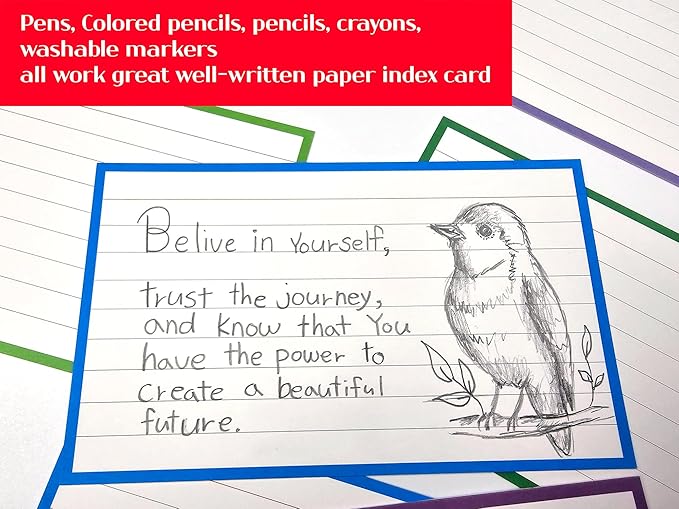 Pens, Colored pencils, pencils, crayons,
washable markers
all work great well-written paper index card
Belive in Yourself,
trust the journey,
and know that You
have the power to
create a beautiful
future.